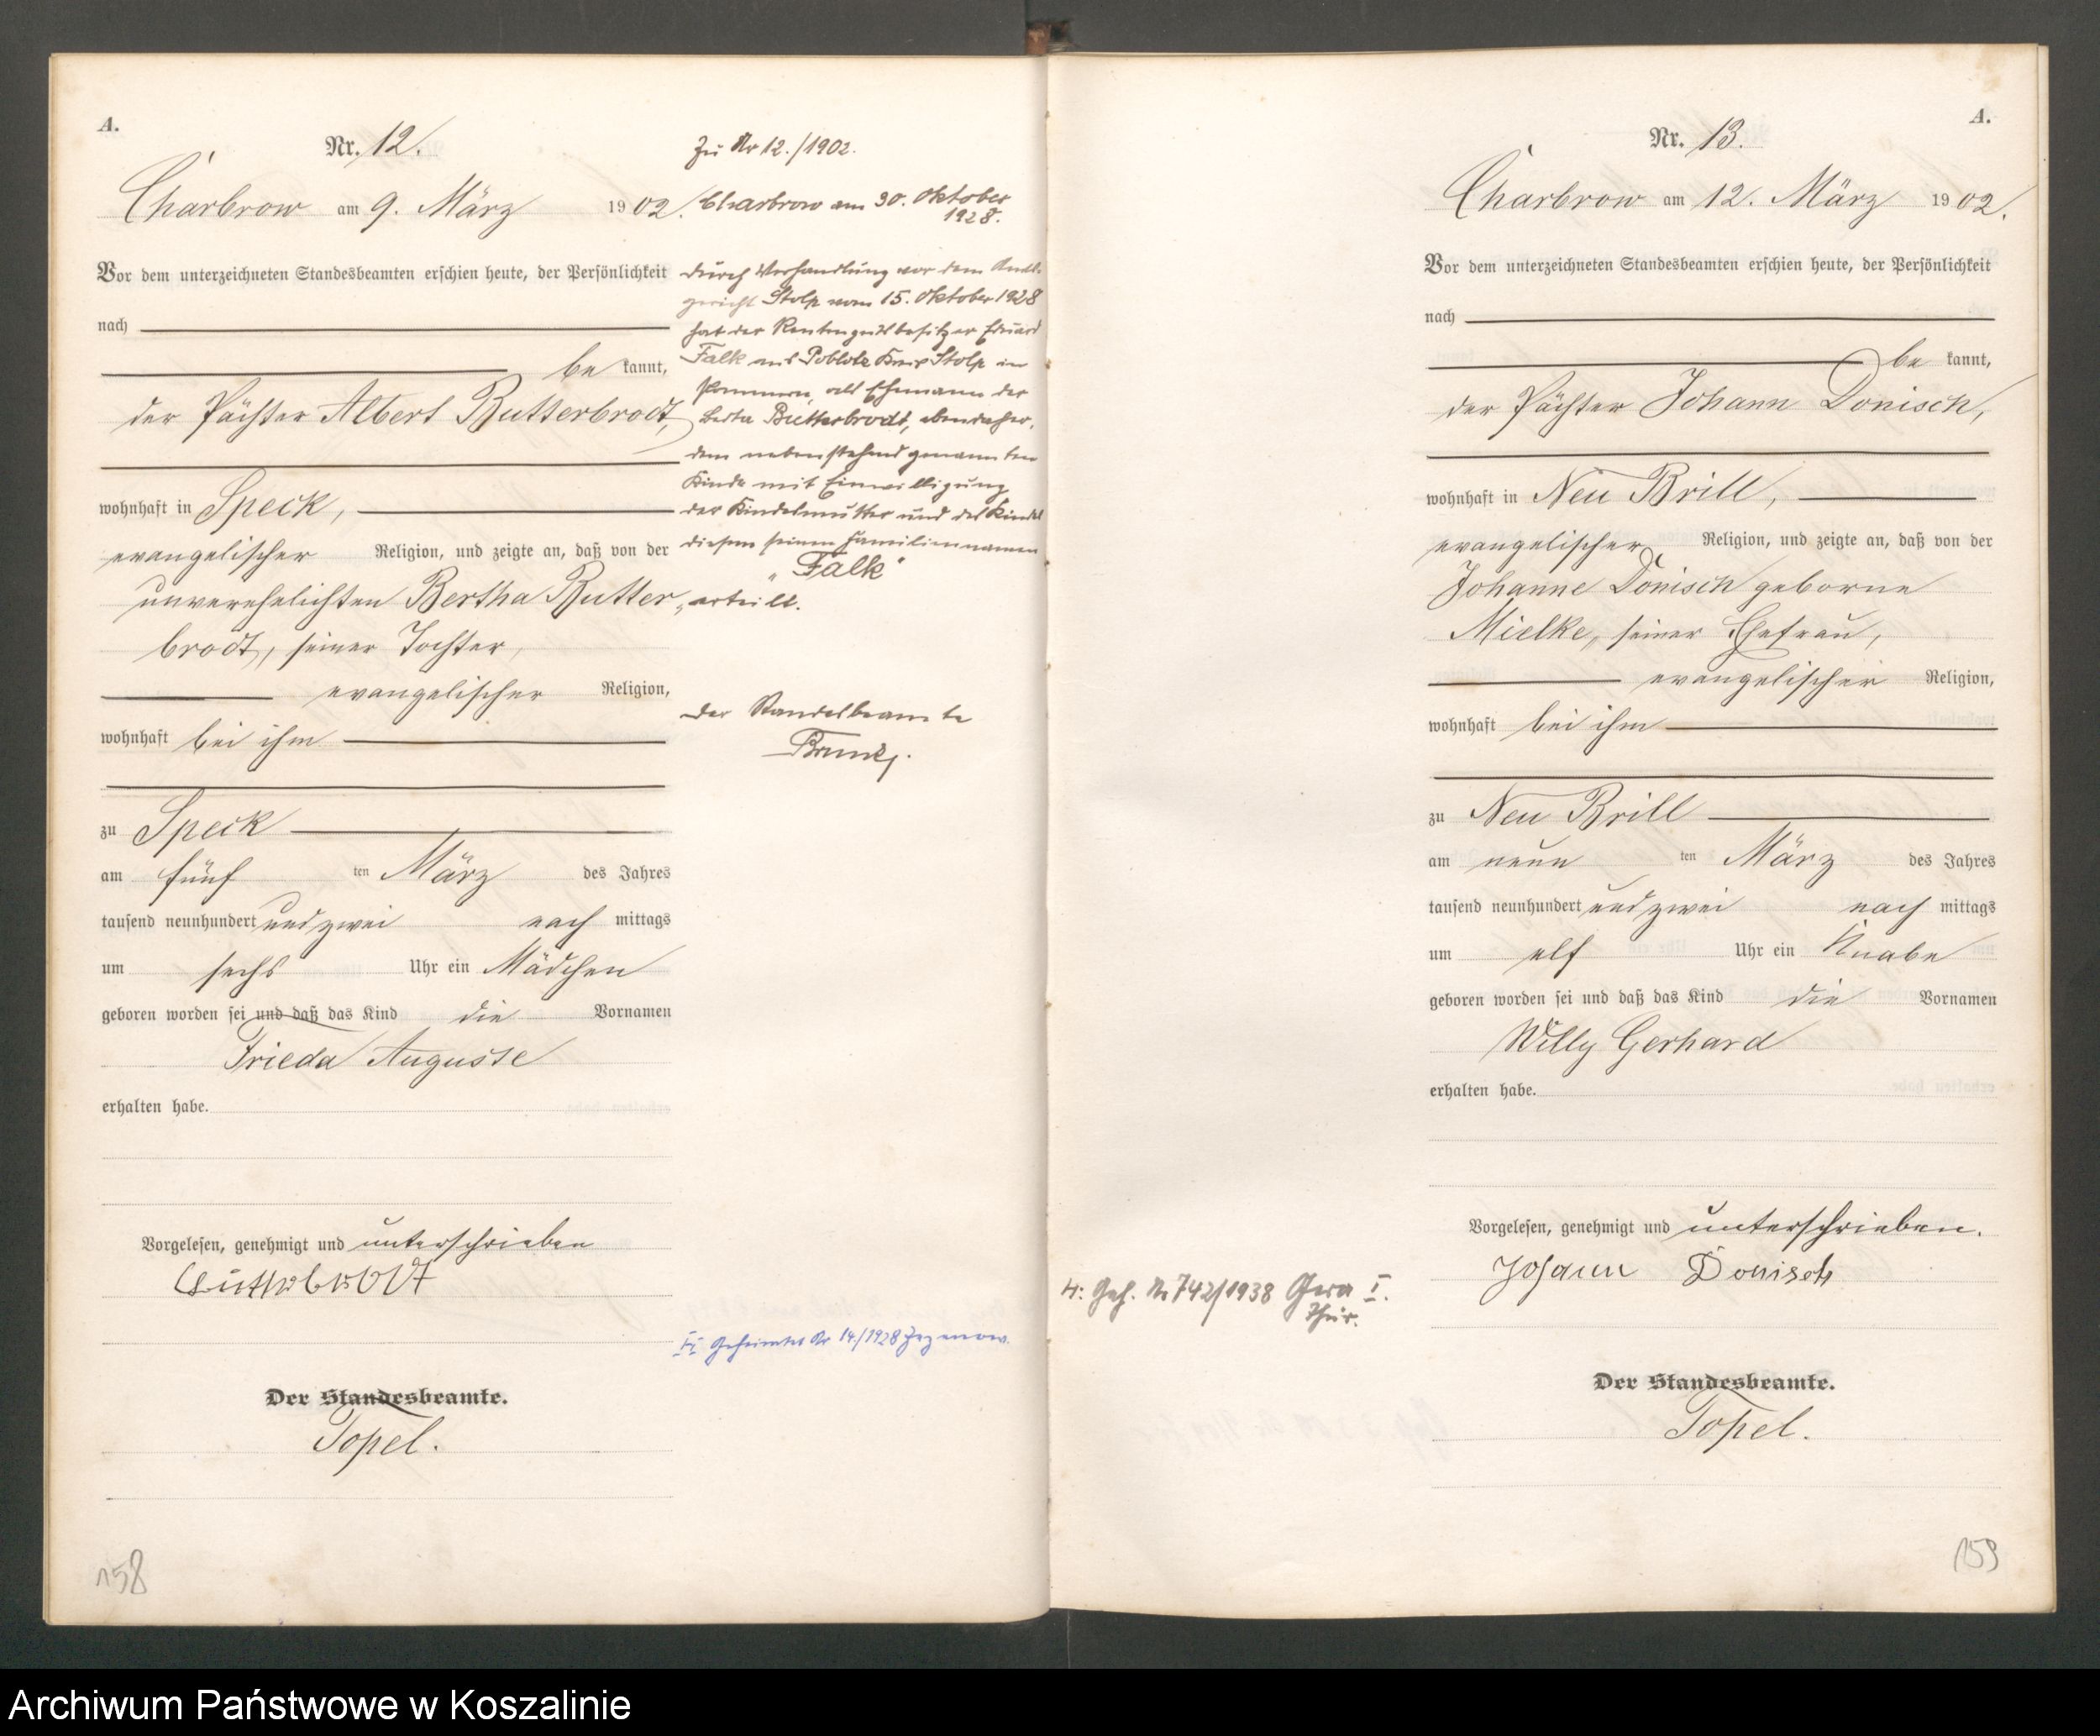 A.
Nr. 12.
Charbrow am 9. März 1902.
Vor dem unterzeichneten Standesbeamten erschien heute, der Persönlichkeit
nach
be kannt,
der Pächter Albert Butterbrodt,
wohnhaft in Speck,
evangelischer Religion, und zeigte an, daß von der
unverehelichten Bertha Butter
brodt, seiner Tochter,
evangelischer Religion,
wohnhaft bei ihm
zu Speck
am fünf ten März des Jahres
tausend neunhundert und zwei nach mittags
um sechs Uhr ein Mädchen
geboren worden sei und daß das Kind die Vornamen
Frieda Auguste
erhalten habe.
Vorgelesen, genehmigt und unterschrieben
Der Standesbeamte.
Topel.
158
Zu Nr 12./1902.
Charbrow am 30. Oktober
1928.
Durch Verhandlung vor dem Amts-
gericht Stolp vom 15. Oktober 1928
hat der Rentengutsbesitzer Eduard
Falk aus Poblotz Kreis Stolp in
Pommern, als Ehemann der
Berta Butterbrodt, ebendaher,
dem nebenstehend genannten
Kinde mit Einwilligung
der Kindesmutter und des Kindes
diesem seinen Familiennamen
"Falk"
erteilt.
Der Standesbeamte
II Geheiratet Nr 14/1928 Zezenow.
A.
Nr. 13.
Charbrow am 12. März 1902.
Vor dem unterzeichneten Standesbeamten erschien heute, der Persönlichkeit
nach
be kannt,
der Pächter Johann Donisch,
wohnhaft in Neu Brill,
evangelischer Religion, und zeigte an, daß von der
Johanne Donisch geborne
Mielke, seiner Ehefrau,
evangelischer Religion,
wohnhaft bei ihm
zu Neu Brill
am neun ten März des Jahres
tausend neunhundert und zwei nach mittags
um elf Uhr ein Knabe
geboren worden sei und daß das Kind die Vornamen
Willy Gerhard
erhalten habe.
Vorgelesen, genehmigt und unterschrieben.
Johann Donisch
H: Geh. Nr 742/1938 Gera I.
Thür.
Der Standesbeamte.
Topel.
159
Archiwum Państwowe w Koszalinie